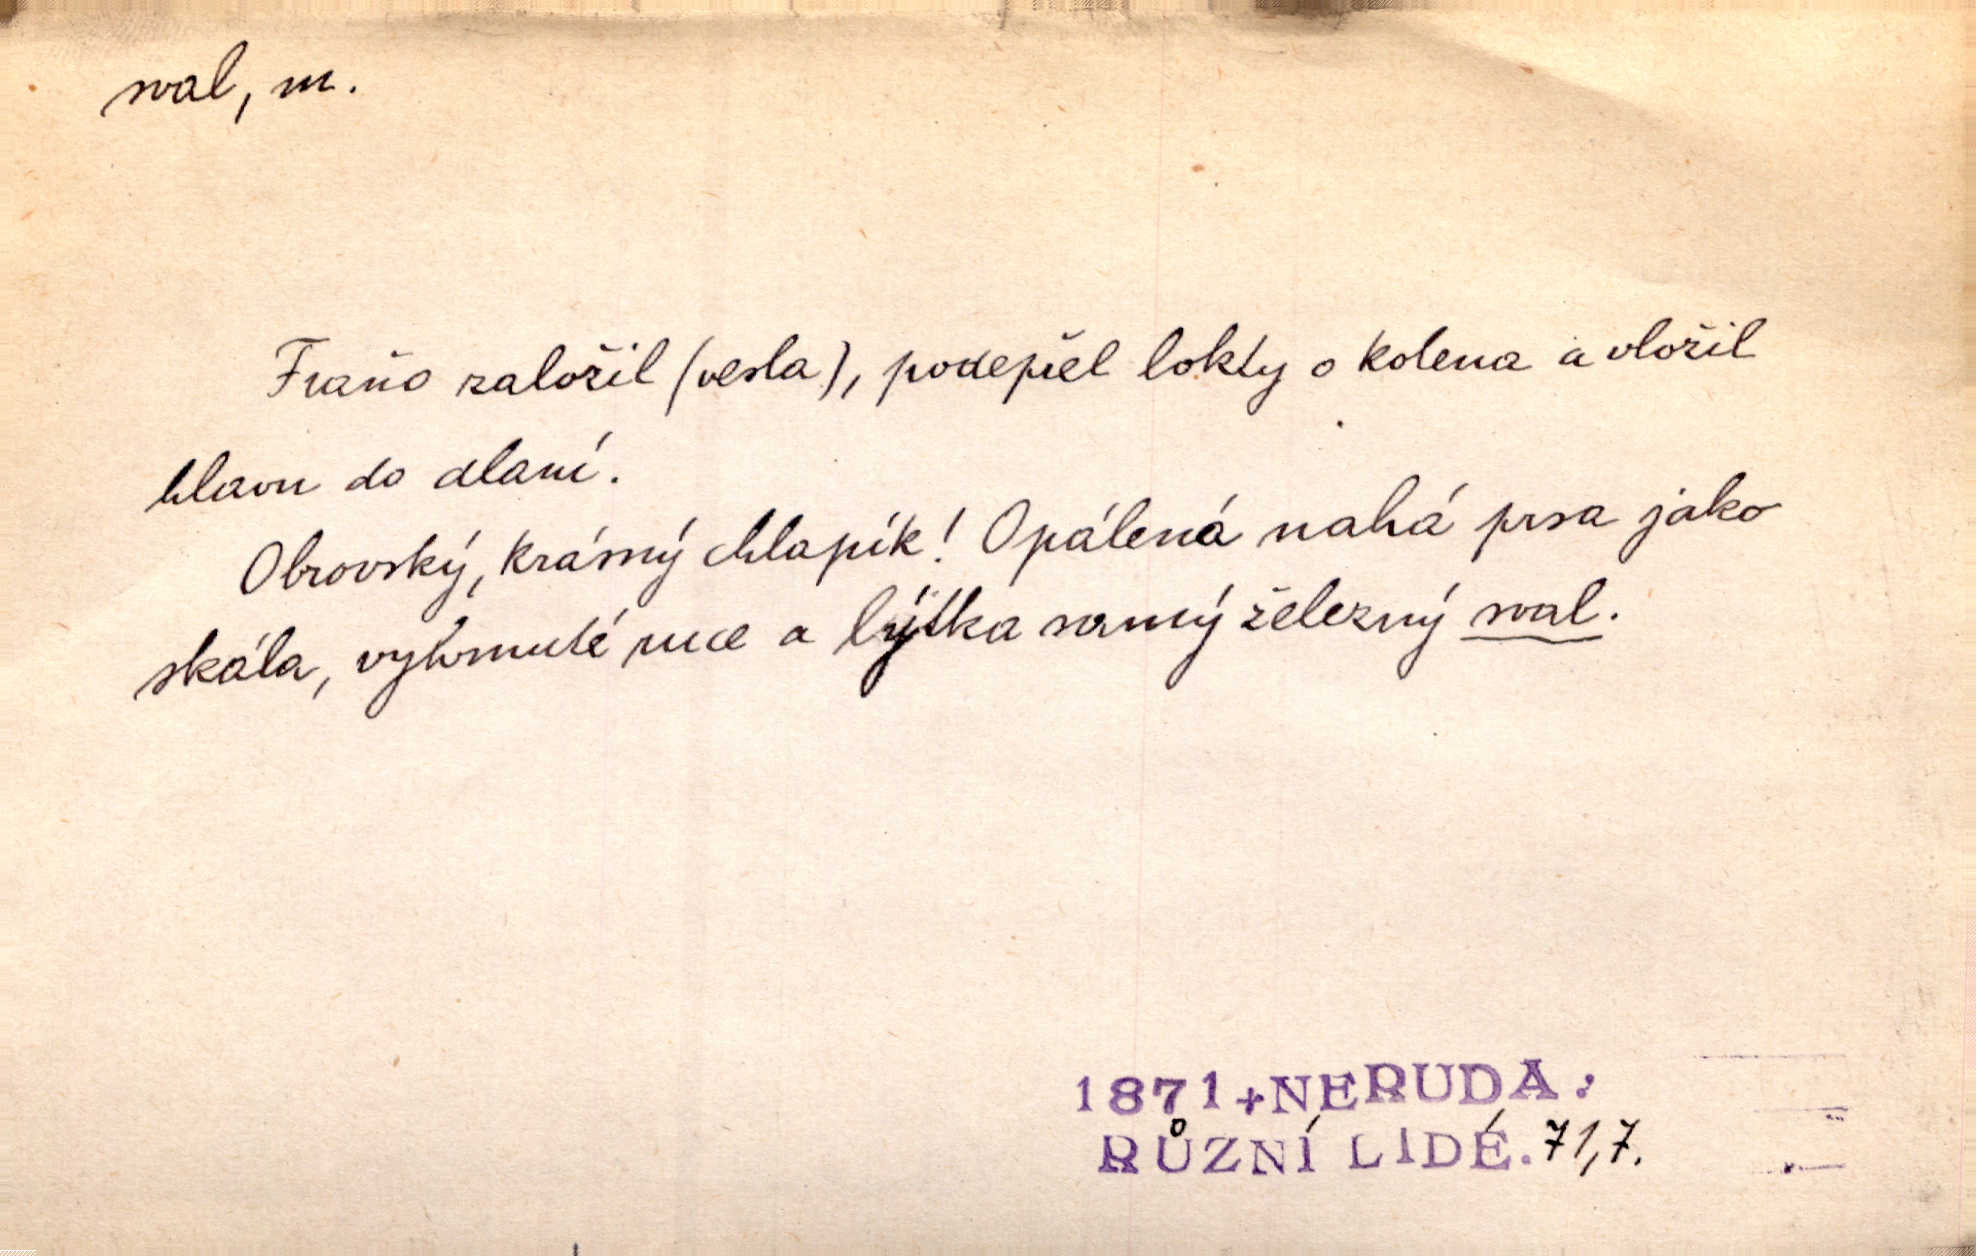 sval, m.
Fraňo založil (vesla), podepřel lokty o kolena a vložil
hlavu do dlaní.
Obrovský, krásný chlapík! Opálená nahá prsa jako
skála, vyhrnuté ruce a lýtka samý železný sval.
1871+NERUDA:
RŮZNÍ LIDÉ. 71,7.